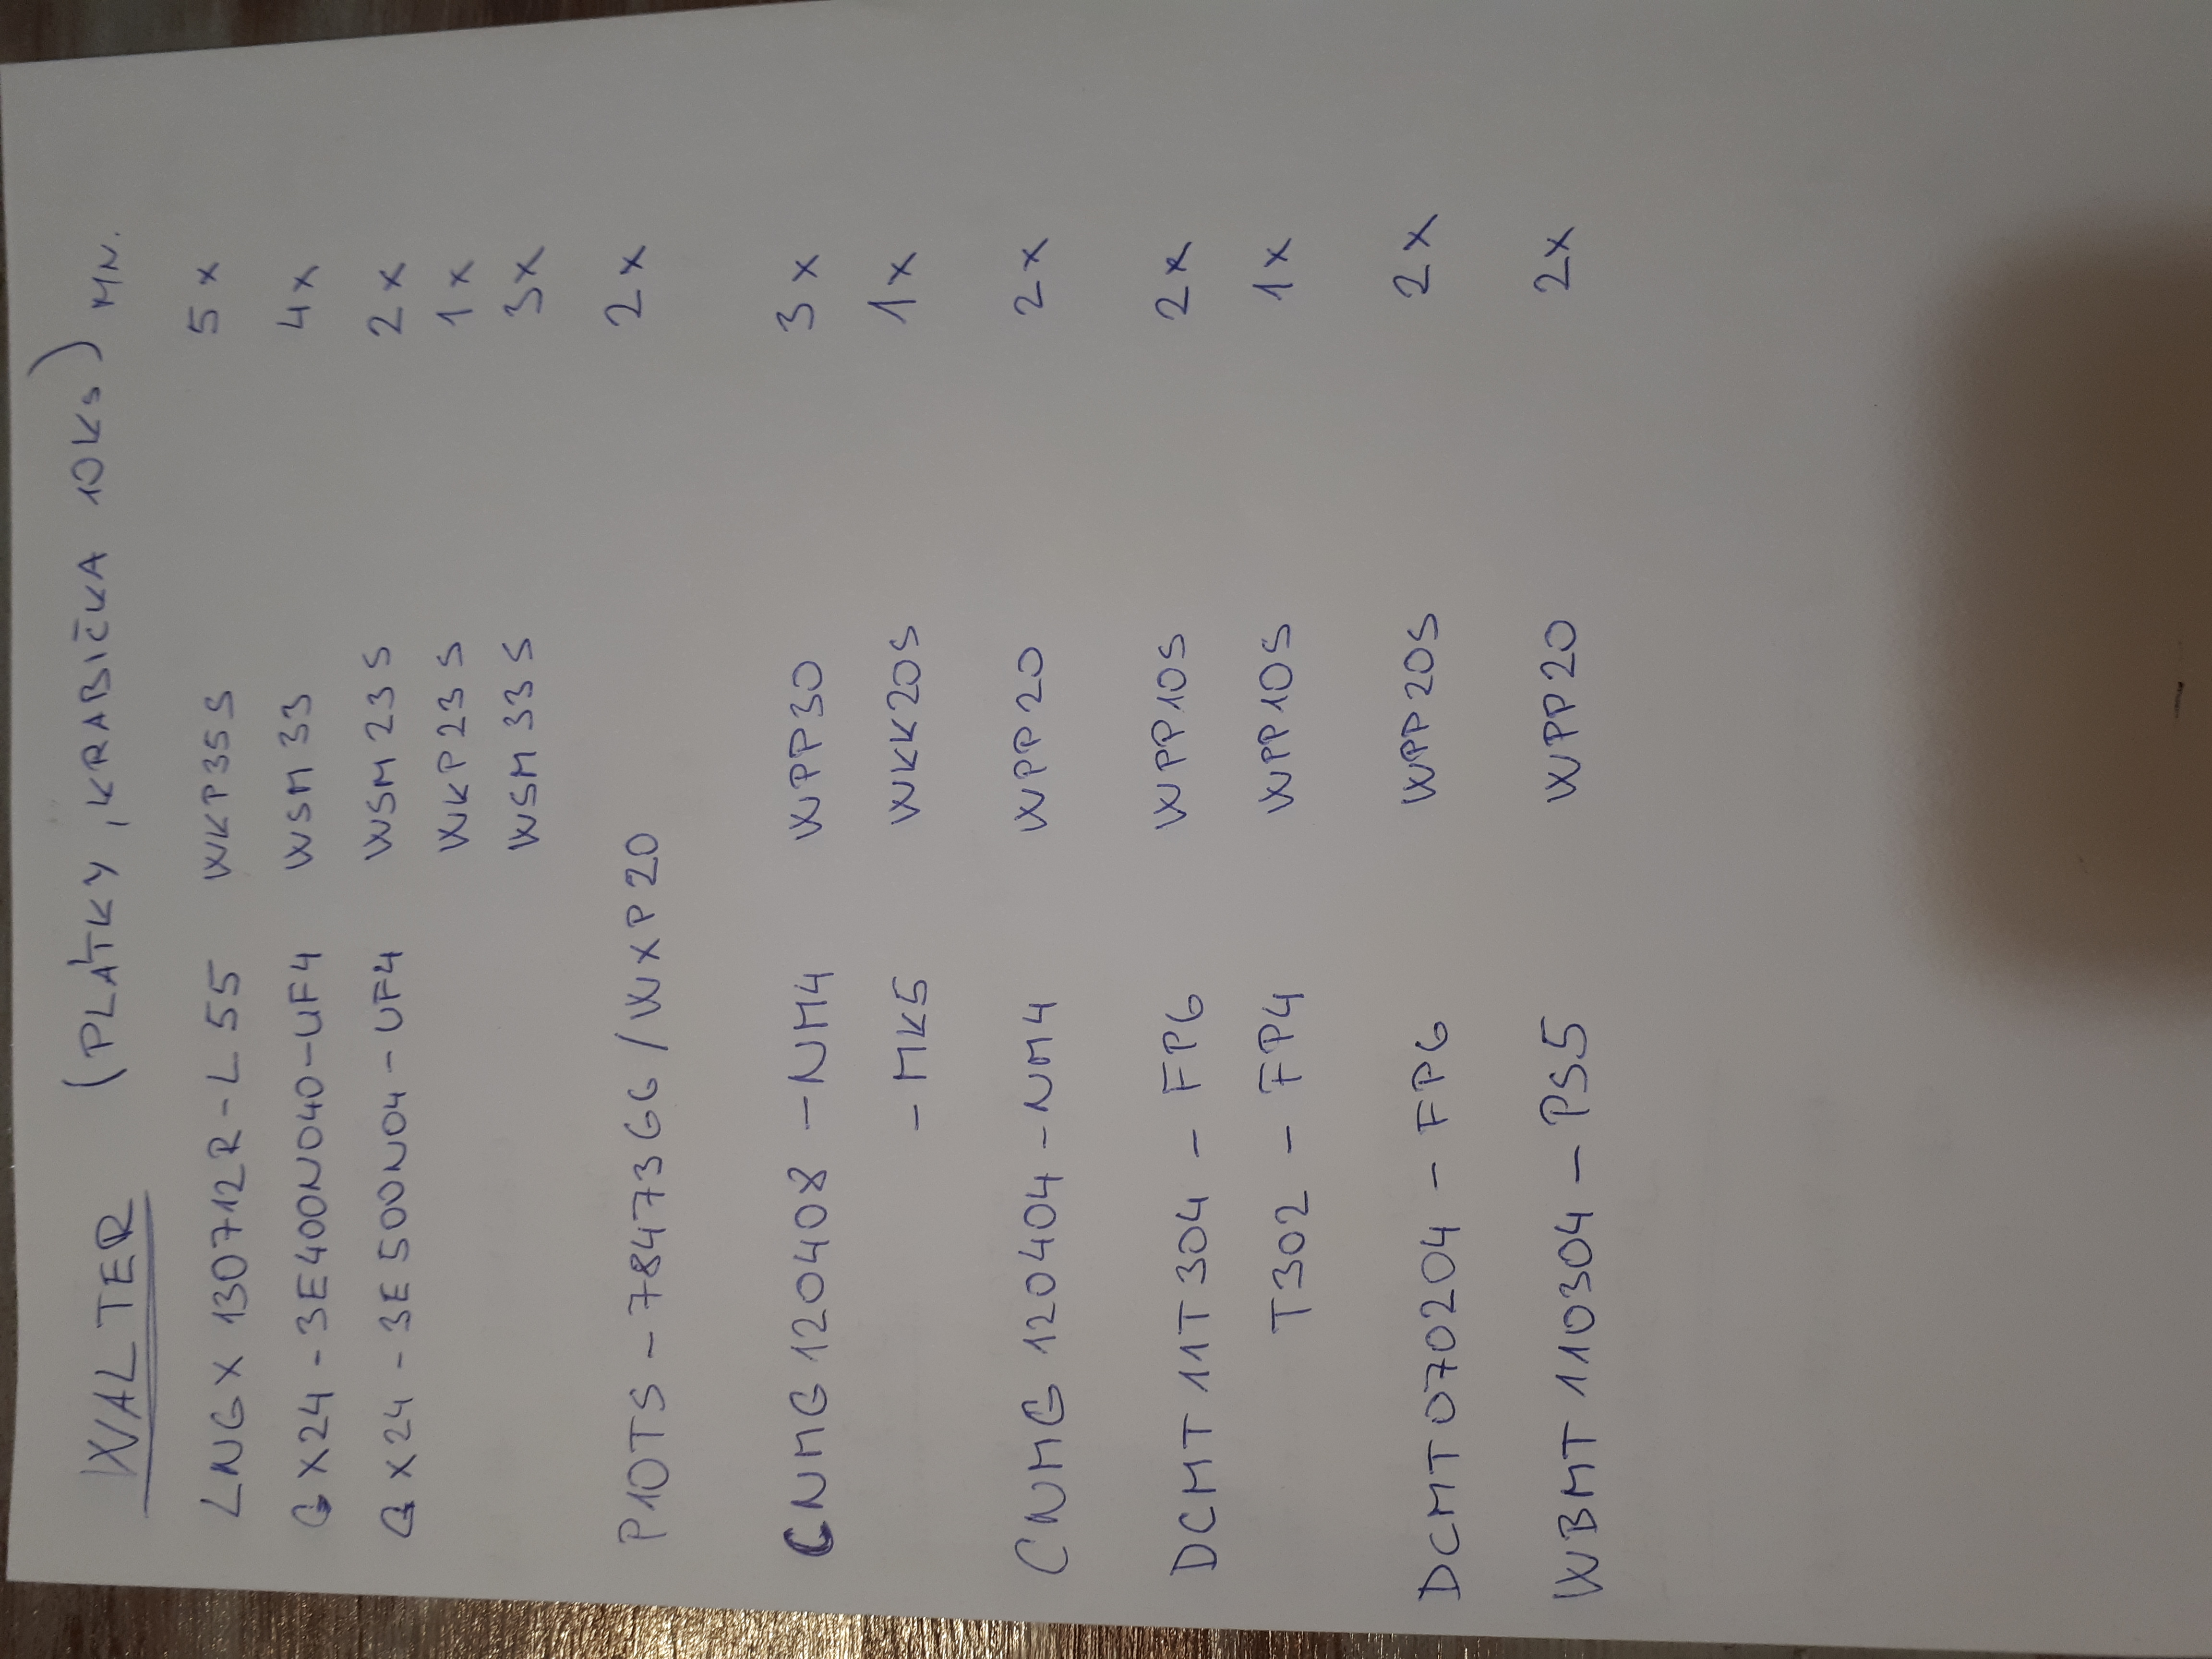 WALTER (PLÁTKY, KRABIČKA 10Ks) MN.
LNGX 130712R-L55 WKP35S 5x
GX24-3E400N040-UF4 WSM33 4x
GX24-3E500N04-UF4 WSM23S 2x
WKP23S 1x
WSM33S 3x
P10TS-7847366/WXP20 2x
CNMG120408-NM4 WPP30 3x
-MK5 WKK20S 1x
CNMG 120404-NM4 WPP20 2x
DCMT 11T304-FP6 WPP10S 2x
T302-FP4 WPP10S 1x
DCMT070204-FP6 WPP20S 2x
WBMT 110304-PS5 WPP20 2x